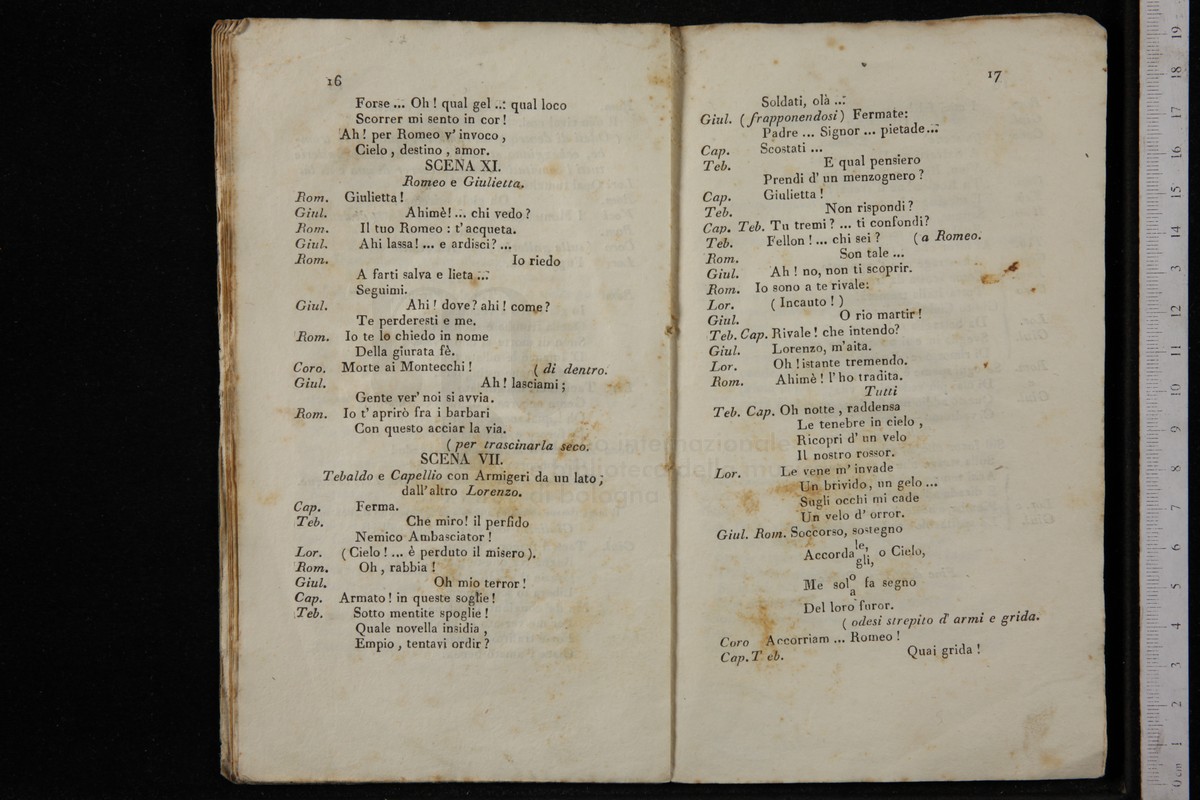 16
Forse ... Oh ! qual gel ..: qual loco
Scorrer mi sento in cor !
Ah ! per Romeo v' invoco ,
Cielo , destino , amor.
SCENA XI.
Romeo e Giulietta.
Rom. Giulietta !
Giul. Ahimè! ... chi vedo ?
Rom. Il tuo Romeo : t' acqueta.
Giul. Ahi lassa ! ... e ardisci ? ...
Rom. Io riedo
A farti salva e lieta ..:
Seguimi.
Giul. Ahi ! dove ? ahi ! come ?
Te perderesti e me.
Rom. Io te lo chiedo in nome
Della giurata fè.
Coro. Morte ai Montecchi ! ( di dentro.
Giul. Ah ! lasciami ;
Gente ver' noi si avvia.
Rom. Io t' aprirò fra i barbari
Con questo acciar la via.
( per trascinarla seco.
SCENA VII.
Tebaldo e Capellio con Armigeri da un lato ;
dall' altro Lorenzo.
Cap. Ferma.
Teb. Che miro! il perfido
Nemico Ambasciator !
Lor. ( Cielo ! ... è perduto il misero ).
Rom. Oh , rabbia !
Giul. Oh mio terror !
Cap. Armato ! in queste soglie !
Teb. Sotto mentite spoglie !
Quale novella insidia ,
Empio , tentavi ordir ?
17
Soldati, olà ..:
Giul. ( frapponendosi ) Fermate:
Padre ... Signor ... pietade..:
Cap. Scostati ...
Teb. E qual pensiero
Prendi d' un menzognero ?
Cap. Giulietta !
Teb. Non rispondi ?
Cap. Teb. Tu tremi ? ... ti confondi?
Teb. Fellon ! ... chi sei ? ( a Romeo.
Rom. Son tale ...
Giul. Ah ! no, non ti scoprir.
Rom. Io sono a te rivale:
Lor. ( Incauto ! )
Giul. O rio martir !
Teb. Cap. Rivale ! che intendo?
Giul. Lorenzo, m'aita.
Lor. Oh ! istante tremendo.
Rom. Ahimè ! l' ho tradita.
Tutti
Teb. Cap. Oh notte , raddensa
Le tenebre in cielo ,
Ricopri d' un velo
Il nostro rossor.
Lor. Le vene m' invade
Un brivido, un gelo ...
Sugli occhi mi cade
Un velo d' orror.
Giul. Rom. Soccorso, sostegno
Accorda le, gli, o Cielo,
Me sol o a fa segno
Del loro furor.
( odesi strepito d' armi e grida.
Coro Accorriam ... Romeo !
Cap. T eb. Quai grida !
internazionale
biblioteca della mu
di bologna